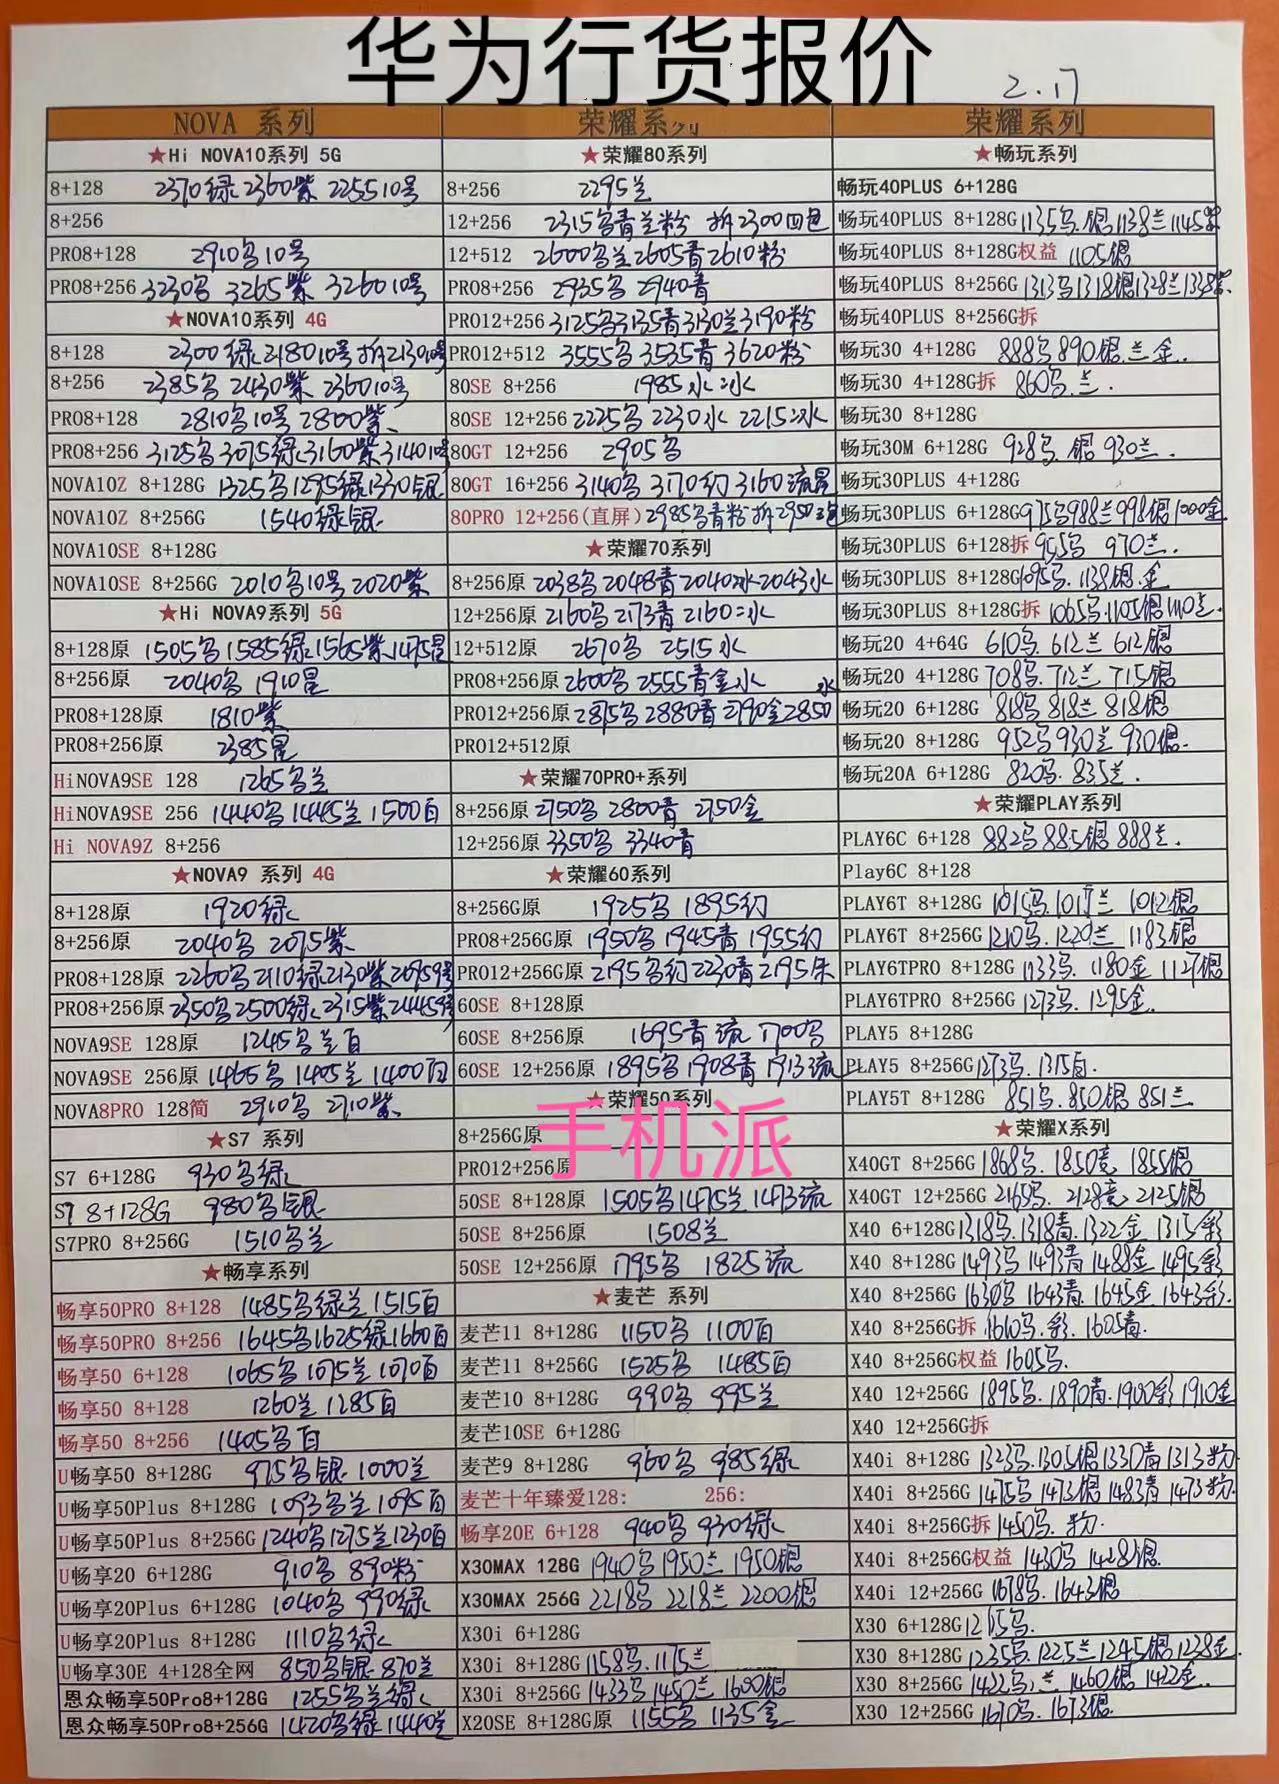 华为行货报价
2.17
NOVA 系列
★Hi NOVA10系列 5G
8+128 2370绿 2360紫 2255 10号
8+256
PRO8+128 2910乌10号
PRO8+256 3230乌 3265紫 3260 10号
★NOVA10系列 4G
8+128 2300绿 2180 10号 拆2130 10号
8+256 2385乌 2430紫 2360 10号
PRO8+128 2810乌10号 2800紫
PRO8+256 3125乌 3075绿 3160紫 3140 10号
NOVA10Z 8+128G 1325乌 1295绿 1330银
NOVA10Z 8+256G 1540绿银
NOVA10SE 8+128G
NOVA10SE 8+256G 2010乌10号 2020紫
★Hi NOVA9系列 5G
8+128原 1505乌 1585绿 1565紫 1475星
8+256原 2040乌 1910星
PRO8+128原 1810紫
PRO8+256原 2385星
HiNOVA9SE 128 1265乌兰
HiNOVA9SE 256 1440乌 1445兰 1500白
Hi NOVA9Z 8+256
★NOVA9 系列 4G
8+128原 1920绿
8+256原 2040乌 2075紫
PRO8+128原 2260乌 2110绿 2130紫 2095 9号
PRO8+256原 2350乌 2500绿 2315紫 2445 9号
NOVA9SE 128原 1245乌兰白
NOVA9SE 256原 1465乌 1405兰 1400白
NOVA8PRO 128简 2910乌 2710紫
★S7 系列
S7 6+128G 930乌绿
S7 8+128G 980乌银
S7PRO 8+256G 1510乌兰
★畅享系列
畅享50PRO 8+128 1485乌绿兰 1515白
畅享50PRO 8+256 1645乌 1625绿 1660白
畅享50 6+128 1065乌 1075兰 1070白
畅享50 8+128 1260兰 1285白
畅享50 8+256 1405乌白
U畅享50 8+128G 975乌银 1000兰
U畅享50Plus 8+128G 1093乌兰 1095白
U畅享50Plus 8+256G 1240乌 1275兰 1230白
U畅享20 6+128G 910乌 890粉
U畅享20Plus 6+128G 1040乌 990绿
U畅享20Plus 8+128G 1110乌绿
U畅享30E 4+128全网 850乌银 870兰
恩众畅享50Pro8+128G 1255乌兰绿
恩众畅享50Pro8+256G 1420乌绿 1440兰
荣耀系列
★荣耀80系列
8+256 2295兰
12+256 2315乌青兰粉 拆2300四色
12+512 2600乌兰 2605青 2610粉
PRO8+256 2935乌 2940青
PRO12+256 3125乌 3135青 3130兰 3190粉
PRO12+512 3555乌 3535青 3620粉
80SE 8+256 1985水冰
80SE 12+256 2225乌 2230水 2215冰
80GT 12+256 2905乌
80GT 16+256 3140乌 3170幻 3160流星
80PRO 12+256(直屏) 2985乌青粉 拆2950三色
★荣耀70系列
8+256原 2038乌 2048青 2040冰 2043水
12+256原 2160乌 2173青 2160冰
12+512原 2670乌 2515水
PRO8+256原 2600乌 2555青金水
PRO12+256原 2875乌 2880青 2790金 2850水
PRO12+512原
★荣耀70PRO+系列
8+256原 2750乌 2800青 2750金
12+256原 3350乌 3340青
★荣耀60系列
8+256G原 1925乌 1895幻
PRO8+256G原 1950乌 1945青 1955幻
PRO12+256G原 2195乌幻 2230青 2195朱
60SE 8+128原
60SE 8+256原 1695青流 1700乌
60SE 12+256原 1895乌 1908青 1913流
★荣耀50系列
手机派
8+256G原
PRO12+256原
50SE 8+128原 1505乌 1475兰 1473流
50SE 8+256原 1508兰
50SE 12+256原 1795乌 1825流
★麦芒 系列
麦芒11 8+128G 1150乌 1100白
麦芒11 8+256G 1525乌 1485白
麦芒10 8+128G 990乌 995兰
麦芒10SE 6+128G
麦芒9 8+128G 960乌 985绿
麦芒十年臻爱128: 256:
畅享20E 6+128 940乌 930绿
X30MAX 128G 1940乌 1950兰 1950银
X30MAX 256G 2218乌 2218兰 2200银
X30i 6+128G
X30i 8+128G 1158乌. 1175兰
X30i 8+256G 1433乌 1450兰 1600银
X20SE 8+128G原 1155乌 1135金
荣耀系列
★畅玩系列
畅玩40PLUS 6+128G
畅玩40PLUS 8+128G 1135乌.银 1138兰 1145紫
畅玩40PLUS 8+128G权益 1105银
畅玩40PLUS 8+256G 1313乌 1318银 1328兰 1338紫.
畅玩40PLUS 8+256G拆
畅玩30 4+128G 888乌 890银.兰 金.
畅玩30 4+128G拆 860乌.兰.
畅玩30 8+128G
畅玩30M 6+128G 928乌. 银 930兰.
畅玩30PLUS 4+128G
畅玩30PLUS 6+128G 975乌 988兰 998银 1000金
畅玩30PLUS 6+128拆 955乌 970兰.
畅玩30PLUS 8+128G 1095乌. 1138银.金
畅玩30PLUS 8+128G拆 1065乌.1105银 1110兰.
畅玩20 4+64G 610乌. 612兰 612银
畅玩20 4+128G 708乌. 712兰 715银
畅玩20 6+128G 818乌 818兰 818银
畅玩20 8+128G 952乌 930兰 930银.
畅玩20A 6+128G 820乌. 835兰.
★荣耀PLAY系列
PLAY6C 6+128 882乌 885银 888兰.
Play6C 8+128
PLAY6T 8+128G 1015乌. 1017兰 1012银
PLAY6T 8+256G 1210乌. 1220兰 1183银
PLAY6TPRO 8+128G 1133乌. 1180金 1127银
PLAY6TPRO 8+256G 1273乌. 1295金
PLAY5 8+128G
PLAY5 8+256G 1273乌. 1315白.
PLAY5T 8+128G 851乌. 850银 851兰
★荣耀X系列
X40GT 8+256G 1868乌. 1850竞 1855银
X40GT 12+256G 2165乌. 2128竞 2125银
X40 6+128G 1318乌. 1318青. 1322金 1315彩
X40 8+128G 1493乌 1493青 1488金 1495彩
X40 8+256G 1630乌 1643青. 1645金 1643彩.
X40 8+256G拆 1610乌.彩. 1605青.
X40 8+256G权益 1605乌.
X40 12+256G 1895乌. 1890青. 1900彩 1910金
X40 12+256G拆
X40i 8+128G 1323乌. 1305银 1330青 1313粉
X40i 8+256G 1475乌 1473银 1483青 1473粉.
X40i 8+256G拆 1450乌. 粉.
X40i 8+256G权益 1430乌 1428银.
X40i 12+256G 1678乌. 1643银
X30 6+128G 1215乌.
X30 8+128G 1235乌. 1225兰 1245银 1238金.
X30 8+256G 1422乌.兰 1460银 1422金.
X30 12+256G 1670乌. 1673银.